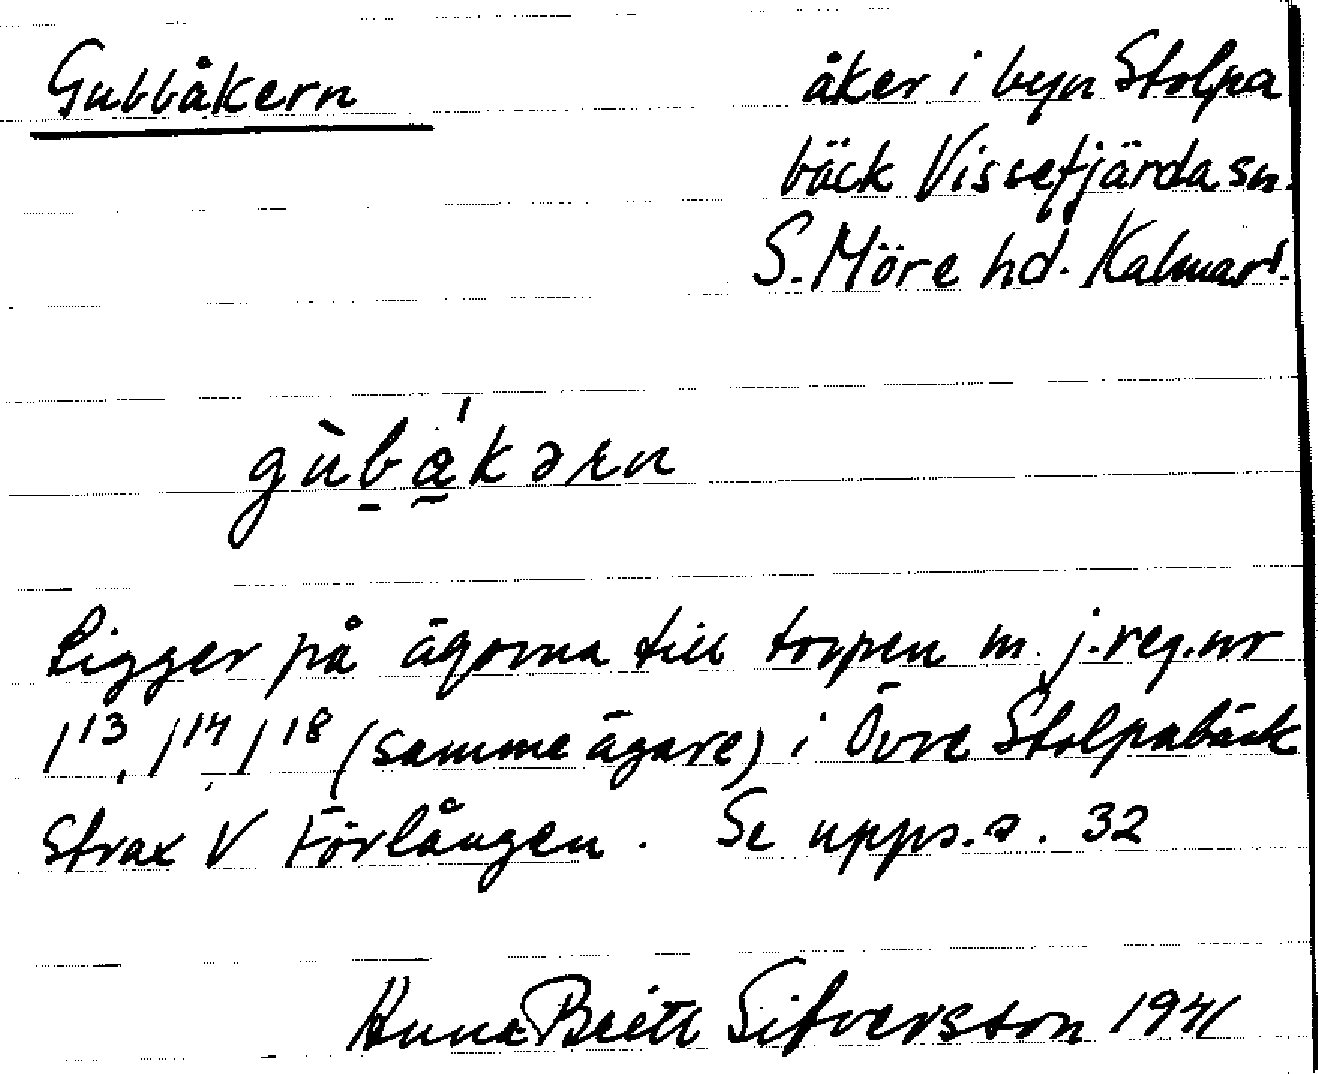 Gubbåkern
åker i byn Stolpa
bäck Vissefjärda sn.
S. Möre hd. Kalmar l.
gùbá̱kərn
Ligger på ägorna till torpen m. j.reg.nr
1¹³, 1¹⁴, 1¹⁸ (samme ägare) i Övre Stolpabäck
Strax V Förlången. Se upps. s. 32
Anna Britt Sifversson 1941